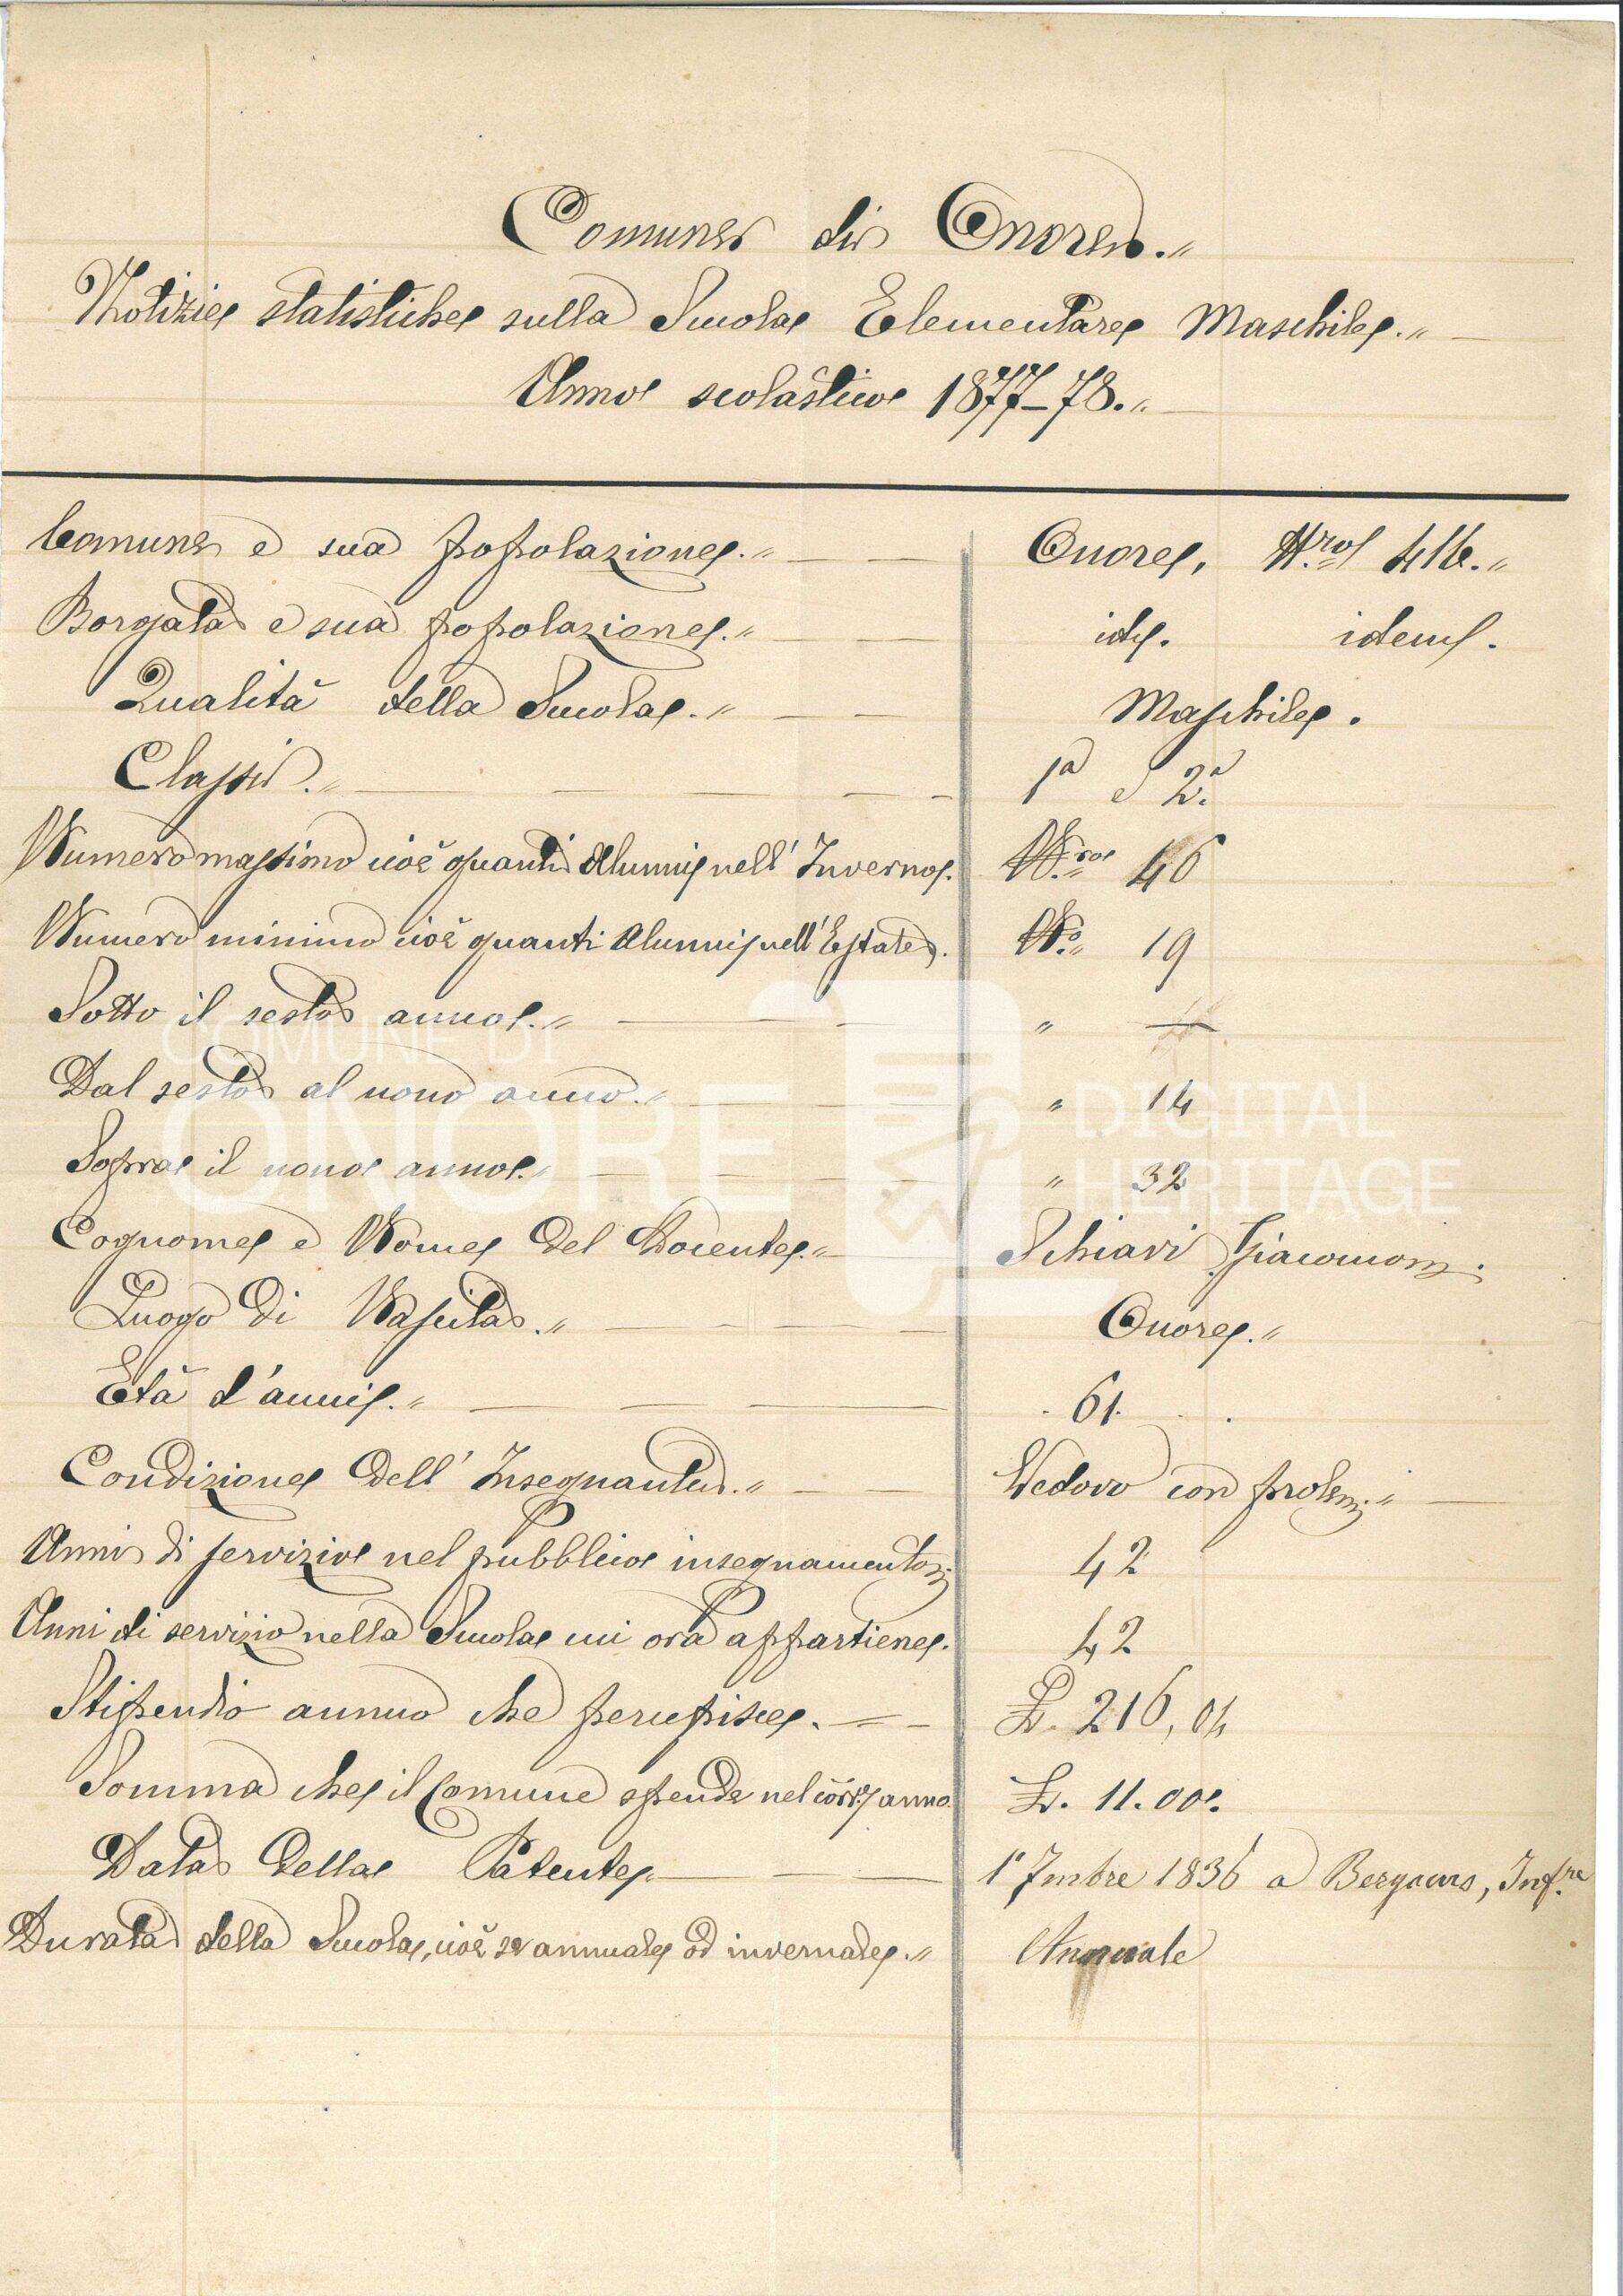 Comune di Onore.„
Notizie statistiche sulla Scuola Elementare Maschile.„
Anno scolastico 1877-78.„
Comune e sua popolazione.„ Onore, N.ro 416.„
Borgata e sua popolazione.„ id. idem.
Qualità della Scuola.„ Maschile.
Classi.„ 1a e 2.a
Numero massimo cioè quanti Alunni nell' Inverno. N.ro 46
Numero minimo cioè quanti Alunni nell' Estate. N.o 19
Sotto il sesto anno.„ „ —
Dal sesto al nono anno.„ „ 14
Sopra il nono anno.„ „ 32
Cognome e Nome del Docente.„ Schiavi Giacomo.
Luogo di Nascita.„ Onore.„
Età d'anni.„ 61.
Condizione dell' Insegnante.„ Vedovo con prole.„
Anni di servizio nel pubblico insegnamento. 42
Anni di servizio nella Scuola cui ora appartiene. 42
Stipendio annuo che percepisce. L. 216,04
Somma che il Comune spende nel corr. anno. L. 11.00.
Data della Patente. 1° 7mbre 1836 a Bergamo, Inf.re
Durata della Scuola, cioè se annuale od invernale.„ Annuale
COMUNE DI
ONORE
DIGITAL
HERITAGE